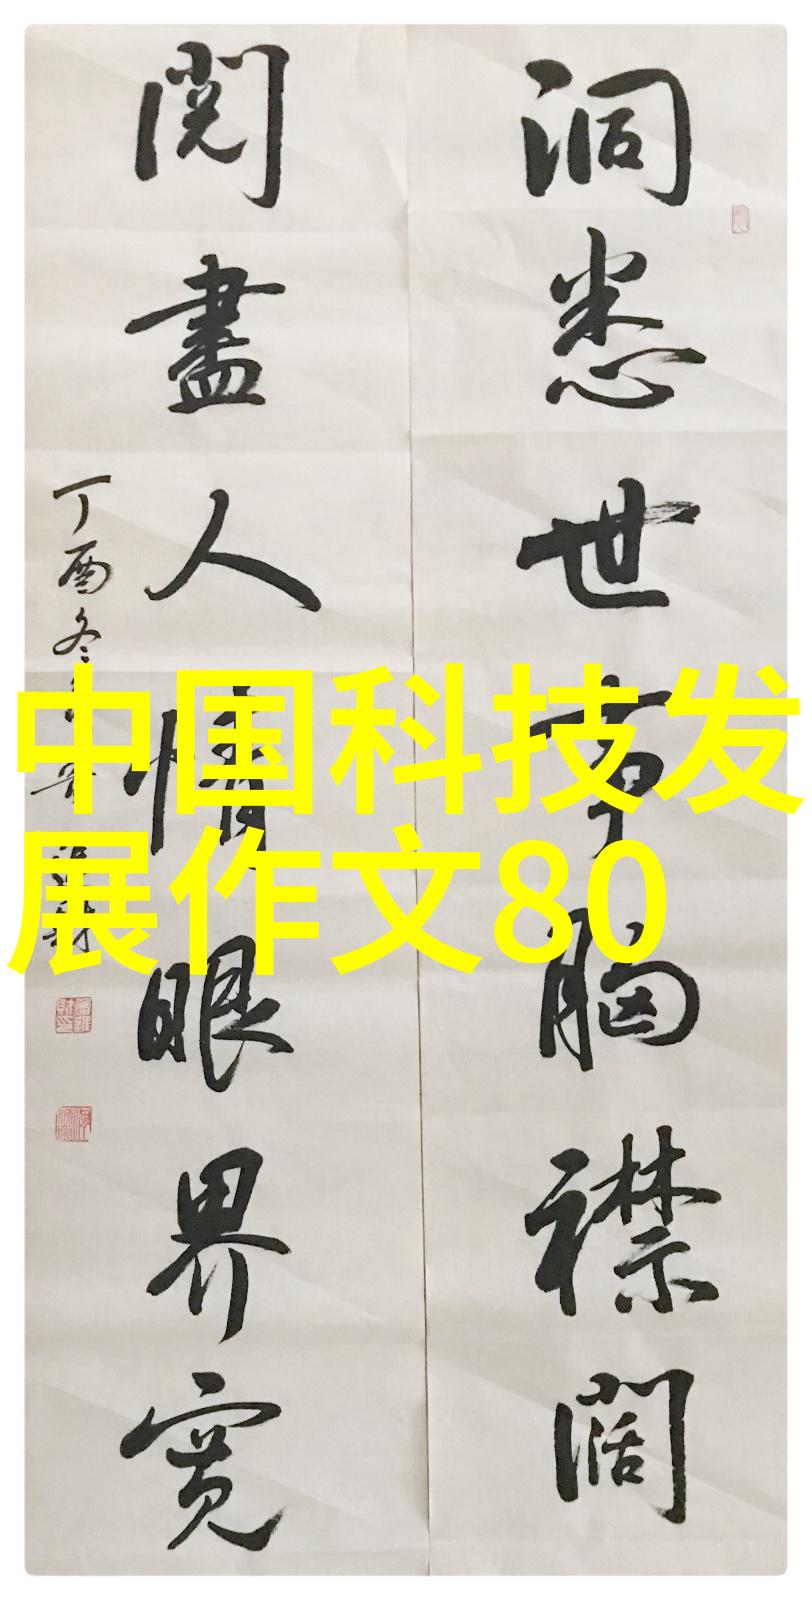 洞悉世事胸襟阔
阅盡人情眼界宽
丁酉冬
中国科技发
展作文80